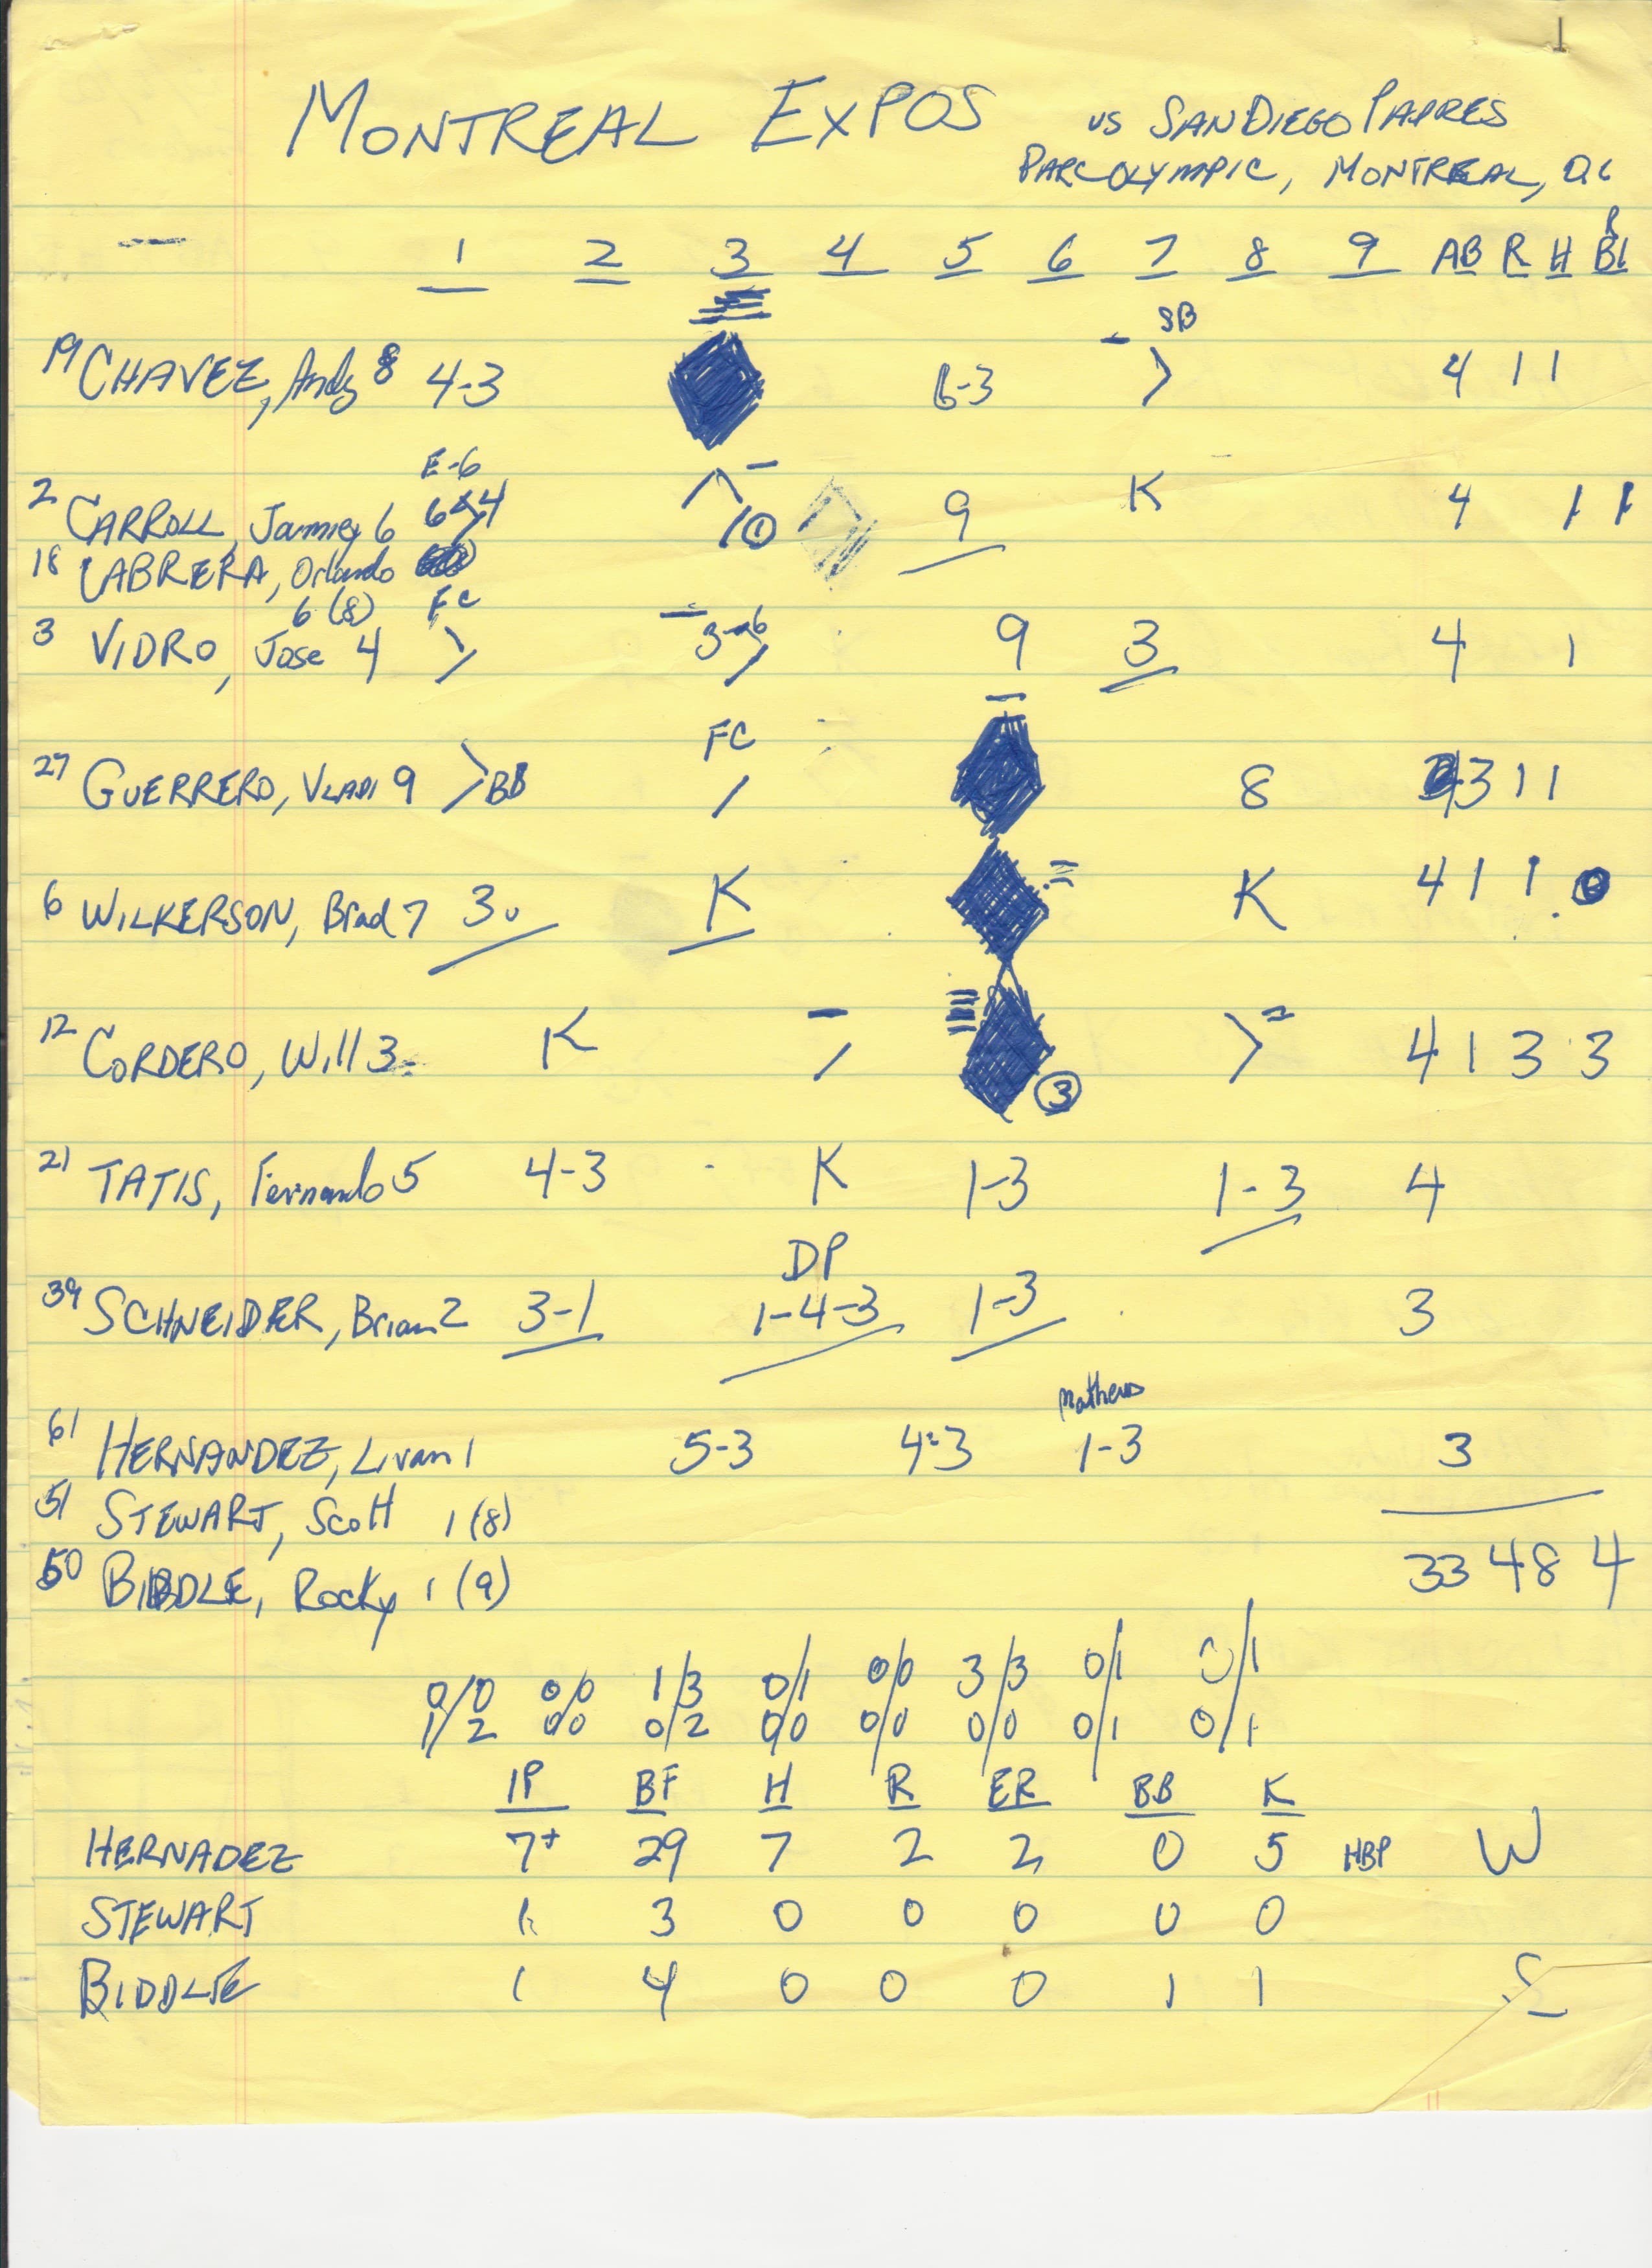 1
MONTREAL EXPOS vs SAN DIEGO PADRES
PARC OLYMPIC, MONTREAL, QC
1 2 3 4 5 6 7 8 9 AB R H RBI
SB
19 CHAVEZ, Andy 8 4-3 6-3 4 1 1
E-6
2 CARROLL, Jamiey 6 6-4 1 ① 9 K 4 1 1
18 CABRERA, Orlando
6 (8) FC
3 VIDRO, Jose 4 3-6 9 3 4 1
FC
27 GUERRERO, VLADI 9 BB 8 3 1 1
6 WILKERSON, Brad 7 3u K K 4 1 1 0
12 CORDERO, Will 3 K ③ 4 1 3 3
21 TATIS, Fernando 5 4-3 K 1-3 1-3 4
DP
39 SCHNEIDER, Brian 2 3-1 1-4-3 1-3 3
Mathews
61 HERNANDEZ, Livan 1 5-3 4-3 1-3 3
51 STEWART, Scott 1 (8)
33 4 8 4
50 BIDDLE, Rocky 1 (9)
0/0 0/0 1/3 0/1 0/0 3/3 0/1 0/1
1/2 0/0 0/2 0/0 0/0 0/0 0/1 0/1
IP BF H R ER BB K
HERNADEZ 7+ 29 7 2 2 0 5 HBP W
STEWART 1 3 0 0 0 0 0
BIDDLE 1 4 0 0 0 1 1 S